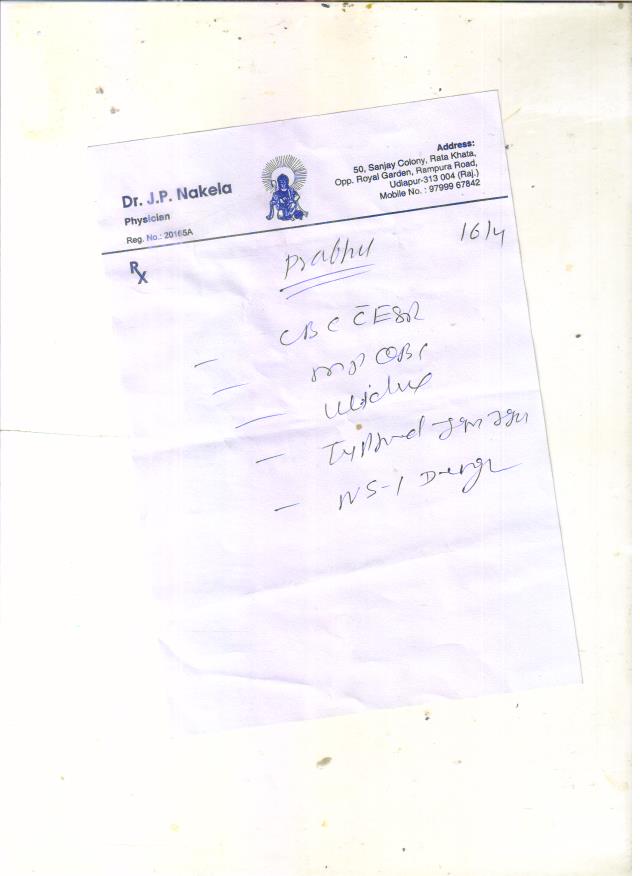 Dr. J.P. Nakela
Physician
Reg. No.: 20165A
Address:
50, Sanjay Colony, Rata Khata,
Opp. Royal Garden, Rampura Road,
Udiapur-313 004 (Raj.)
Mobile No. : 97999 67842
Rx
Prabhu
16/4
- CBC C̄ ESR
- MP QBC
- Widal
- Typhoid IgM IgG
- NS-1 Dengu